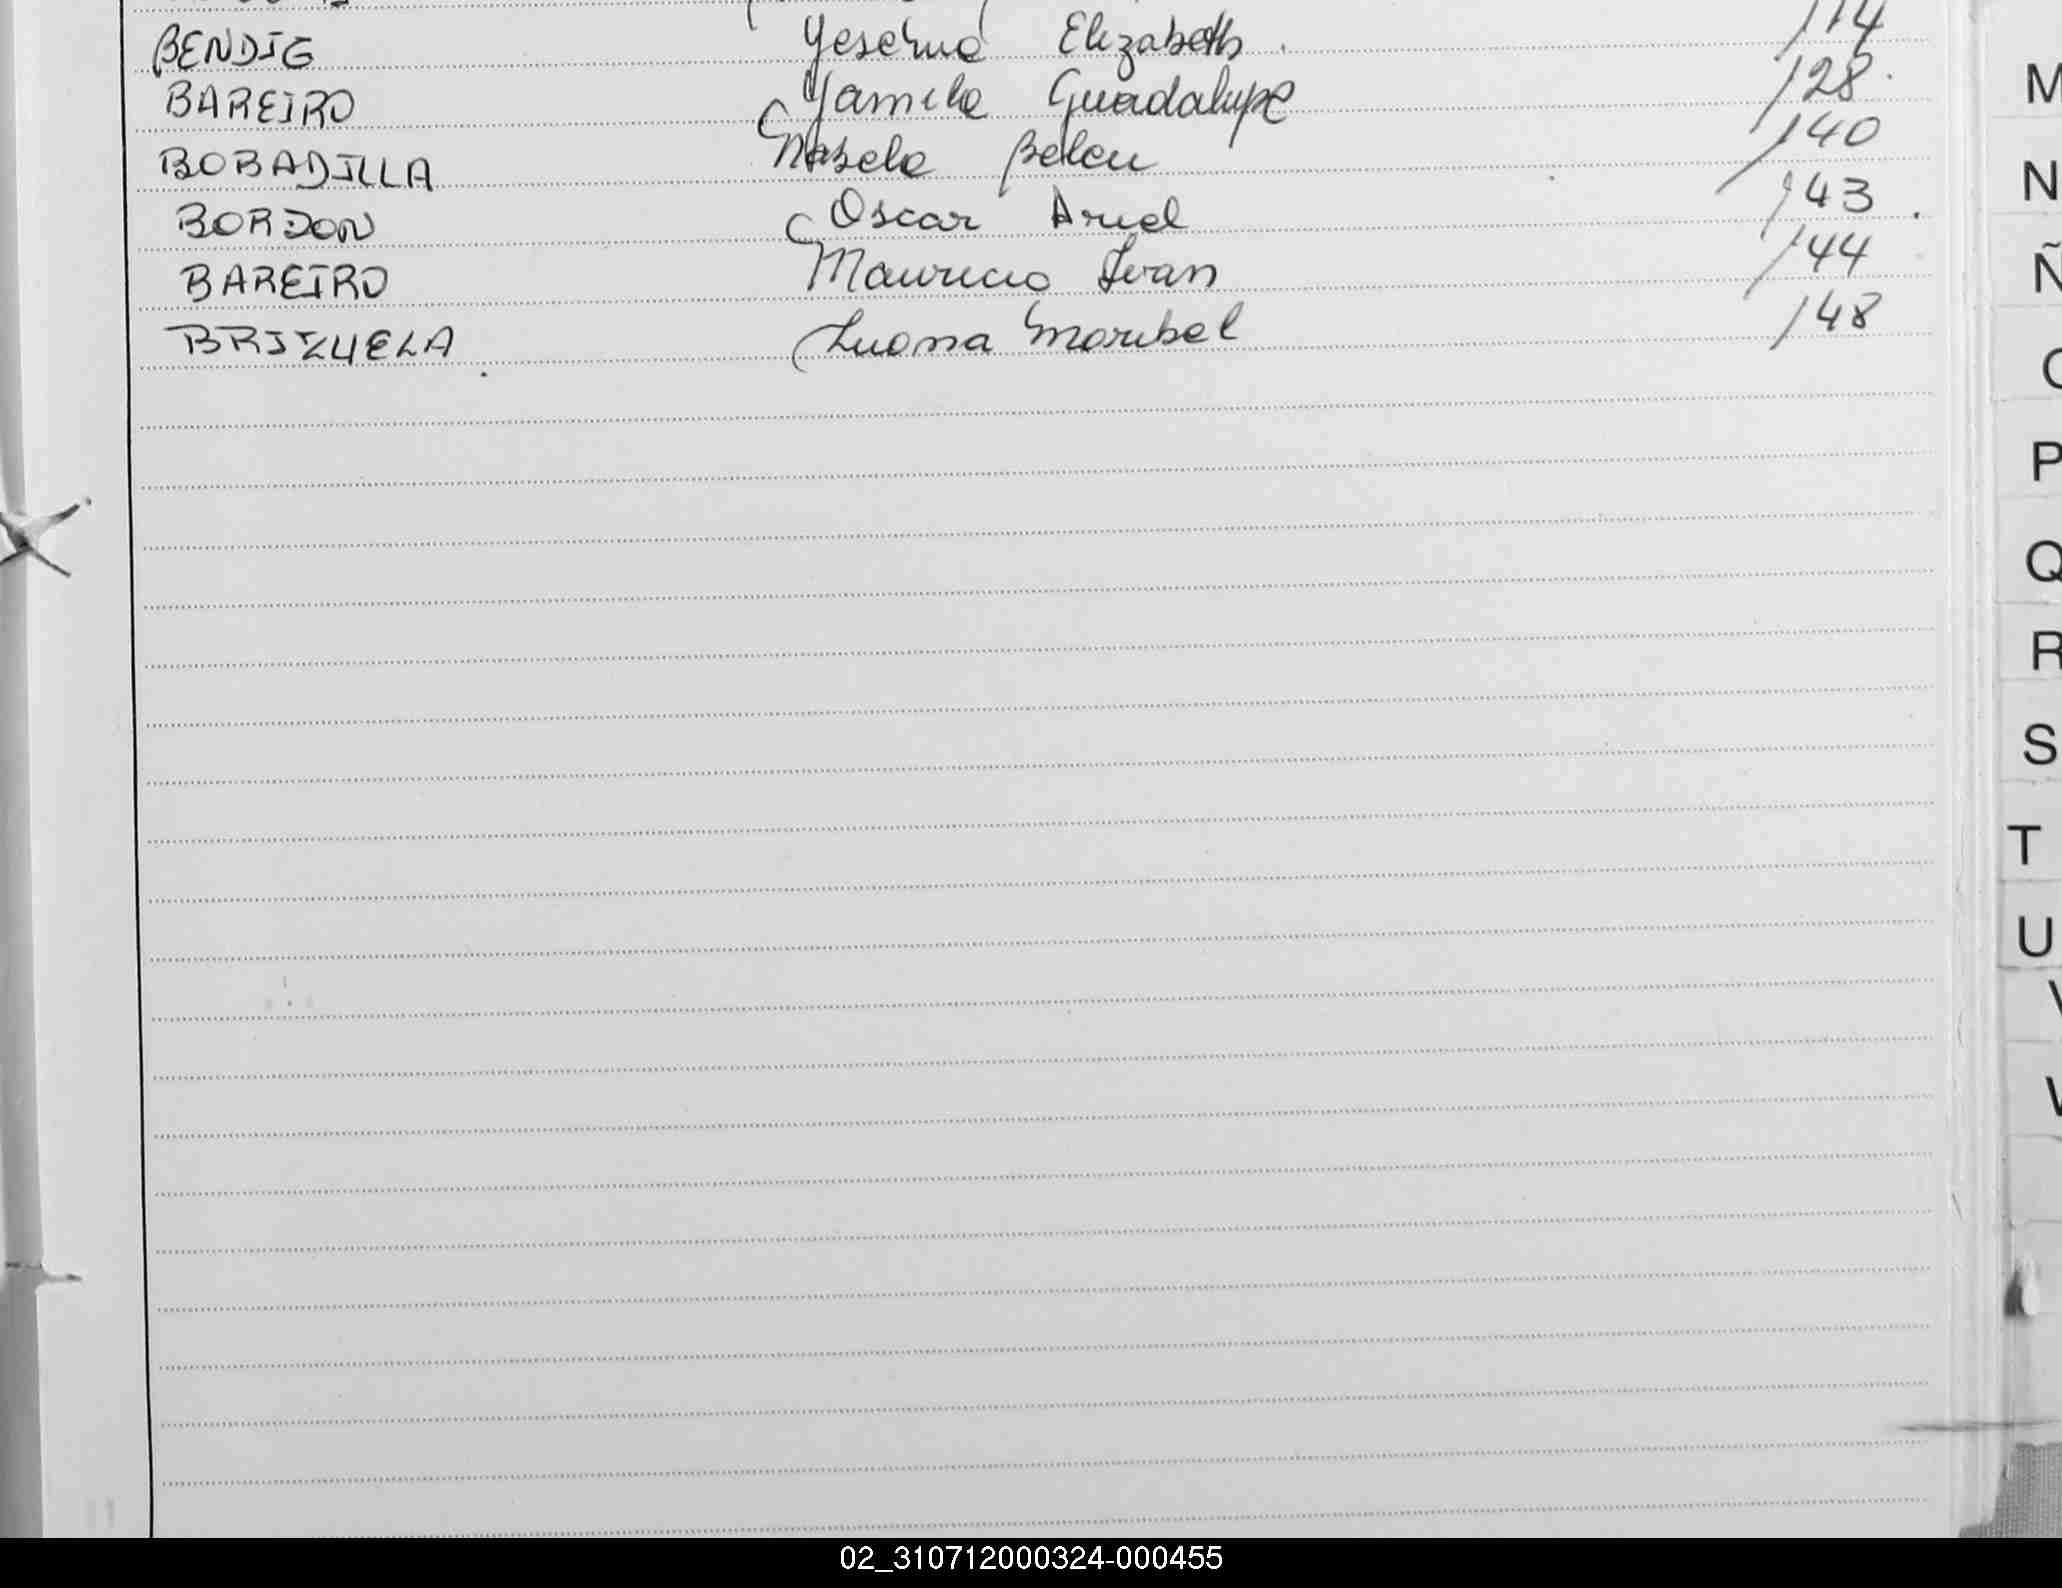 BENDIG Yesenia Elizabeth 114
BAREIRO Yamila Guadalupe 128
BOBADILLA Belen 140
BORDON Oscar Ariel 143
BAREIRO Mauricio Ivan 144
BRIZUELA Luana Maribel 148
M
N
Ñ
O
P
Q
R
S
T
U
V
W
02_310712000324-000455